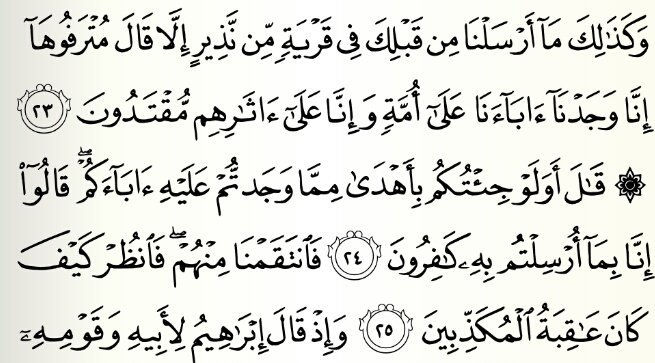 وَكَذَٰلِكَ مَآ أَرْسَلْنَا مِن قَبْلِكَ فِى قَرْيَةٍ مِّن نَّذِيرٍ إِلَّا قَالَ مُتْرَفُوهَآ
إِنَّا وَجَدْنَآ ءَابَآءَنَا عَلَىٰٓ أُمَّةٍ وَإِنَّا عَلَىٰٓ ءَاثَٰرِهِم مُّقْتَدُونَ ٢٣
۞ قَٰلَ أَوَلَوْ جِئْتُكُم بِأَهْدَىٰ مِمَّا وَجَدتُّمْ عَلَيْهِ ءَابَآءَكُمْ ۖ قَالُوٓا۟
إِنَّا بِمَآ أُرْسِلْتُم بِهِۦ كَٰفِرُونَ ٢٤ فَٱنتَقَمْنَا مِنْهُمْ ۖ فَٱنظُرْ كَيْفَ
كَانَ عَٰقِبَةُ ٱلْمُكَذِّبِينَ ٢٥ وَإِذْ قَالَ إِبْرَٰهِيمُ لِأَبِيهِ وَقَوْمِهِۦٓ